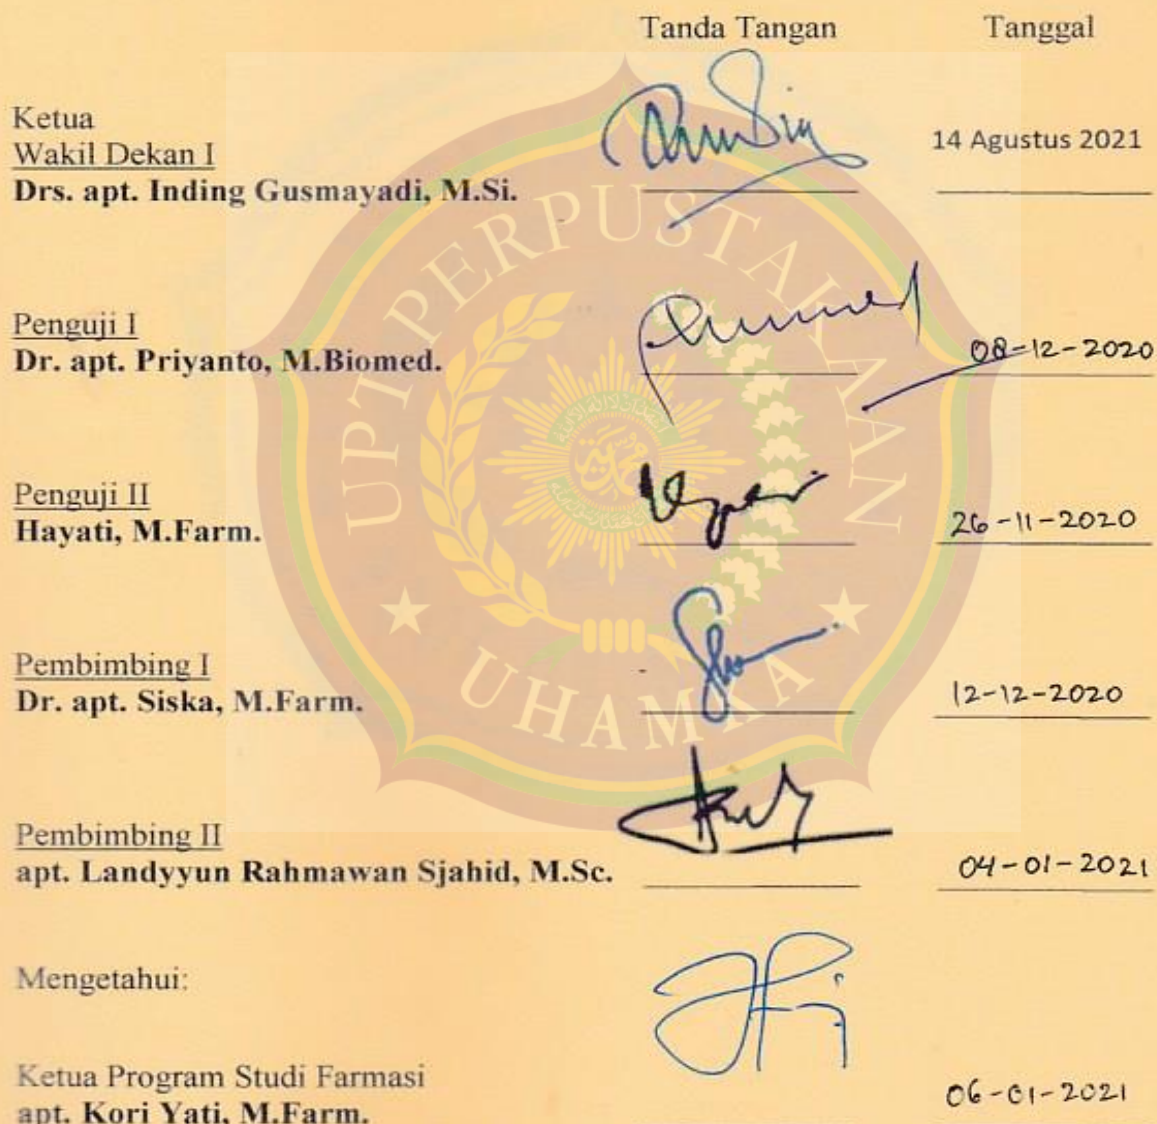 Tanda Tangan Tanggal
Ketua
Wakil Dekan I
14 Agustus 2021
Drs. apt. Inding Gusmayadi, M.Si.
Penguji I
Dr. apt. Priyanto, M.Biomed.
08-12-2020
Penguji II
Hayati, M.Farm.
26-11-2020
Pembimbing I
Dr. apt. Siska, M.Farm.
12-12-2020
Pembimbing II
apt. Landyyun Rahmawan Sjahid, M.Sc.
04-01-2021
Mengetahui:
Ketua Program Studi Farmasi
apt. Kori Yati, M.Farm.
06-01-2021
UPT PERPUSTAKAAN
UHAMKA